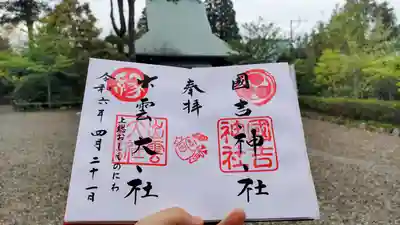 國吉神社
奉拝
出雲大社
上総おしものにわ
令和六年 四月二十一日
國吉神社
出雲大社